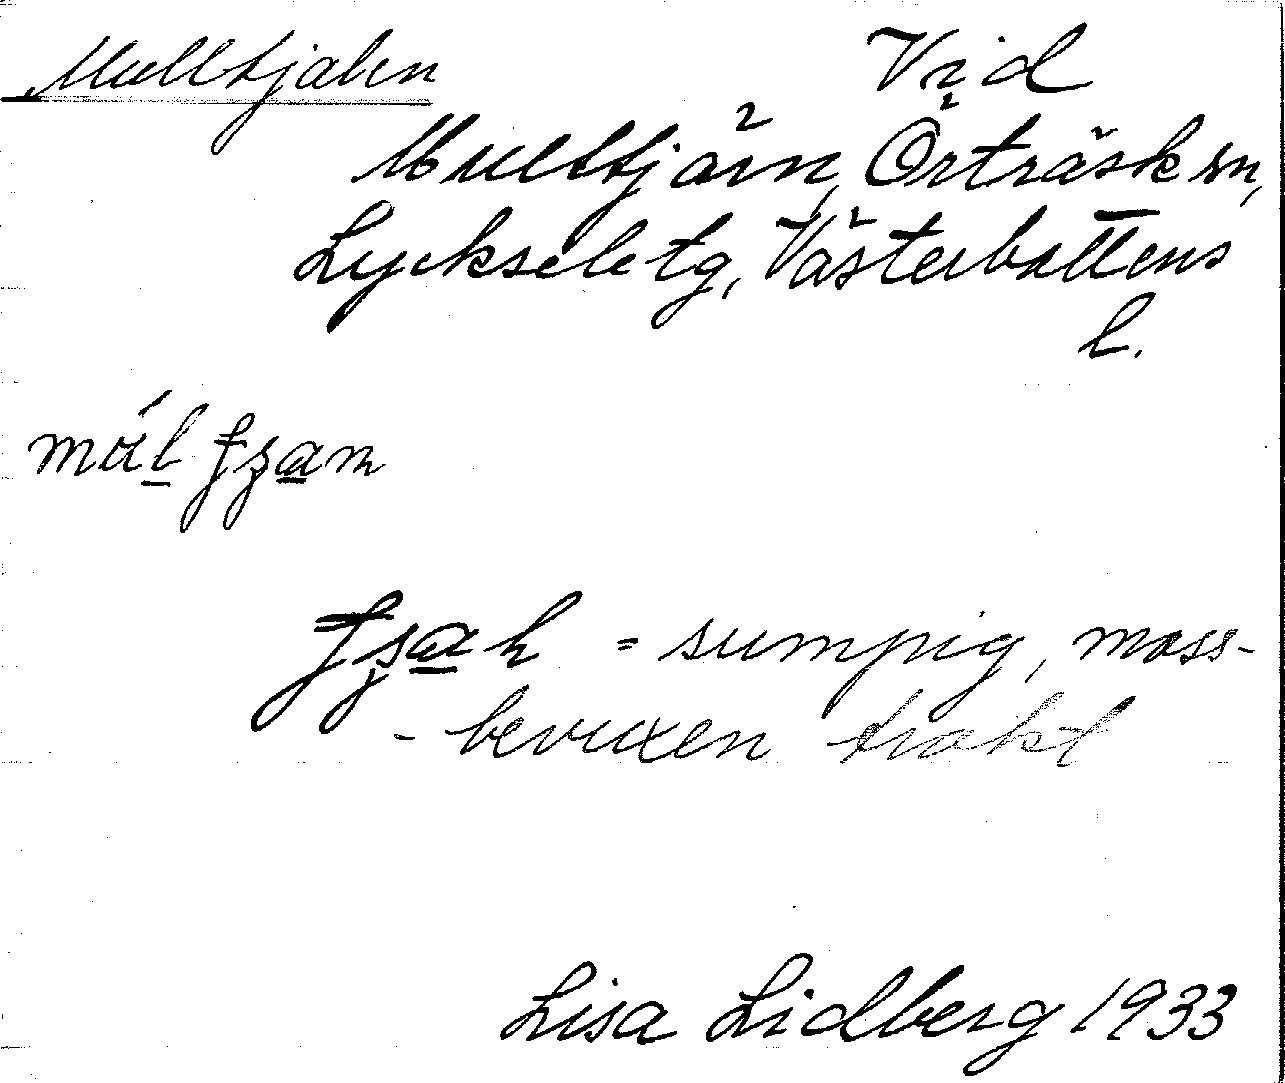 Mulltjalen
Vid
Mulltjärn, Örträsk sn,
Lycksele tg, Västerbottens
l.
= sumpig, moss-
- bevuxen trakt
Lisa Lidberg 1933